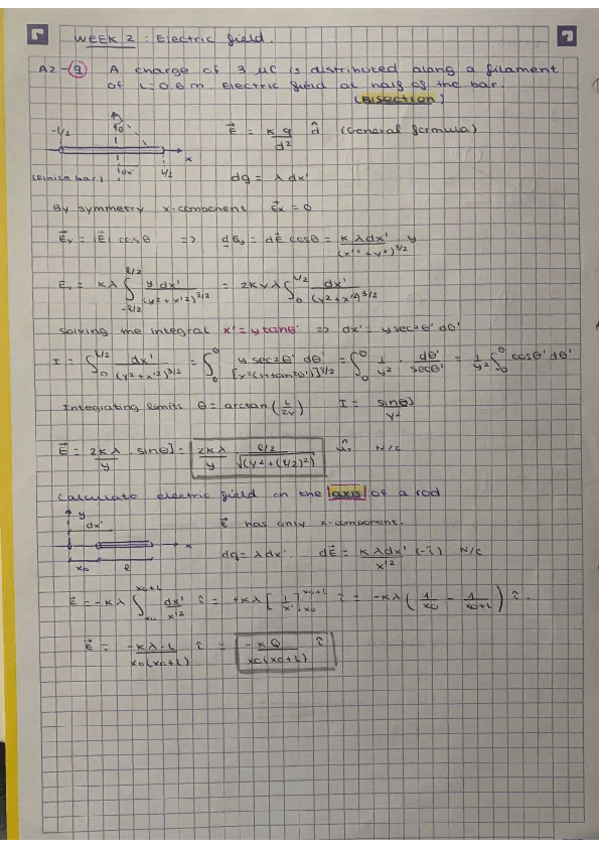 WEEK 2 : Electric field.
A2-9 A charge of 3 μC is distributed along a filament
of L=0,6 m. Electric field at half of the bar.
(Bisection)
-L/2 θ dx' L/2 x
(Finite bar)
E⃗ = K q / d² d̂ (General formula)
dq = λ dx'
By symmetry x-component E⃗x = 0
E⃗y = |E⃗| cosθ => dEy = dE⃗ cosθ = K λ dx' / (x'² + y²)^3/2 y
Ey = Kλ ∫_{-L/2}^{L/2} y dx' / (y² + x'²)^3/2 = 2Kyλ ∫_0^{L/2} dx' / (y² + x'²)^3/2
Solving the integral x' = y tanθ' => dx' = y sec²θ' dθ'
I = ∫_0^{L/2} dx' / (y² + x'²)^3/2 = ∫_0^θ y sec²θ' dθ' / [y²(1+tan²θ')]^3/2 = ∫_0^θ 1/y² · dθ'/secθ' = 1/y² ∫_0^θ cosθ' dθ'
Integrating limits θ = arctan(L/2y) I = sinθ] / y²
E⃗ = 2Kλ/y · sinθ] = 2Kλ/y · L/2 / √(y² + (L/2)²) N/C
Calculate electric field on the axis of a rod
y
dx'
x
x0 L
E⃗ has only x-component.
dq = λ dx' dE⃗ = K λ dx' / x'² (-î) N/C
E⃗ = -Kλ ∫_{x0}^{x0+L} dx'/x'² î = +Kλ [1/x']_{x0}^{x0+L} î = -Kλ (1/x0 - 1/x0+L) î.
E⃗ = -Kλ·L / x0(x0+L) î = -KQ / x0(x0+L) î